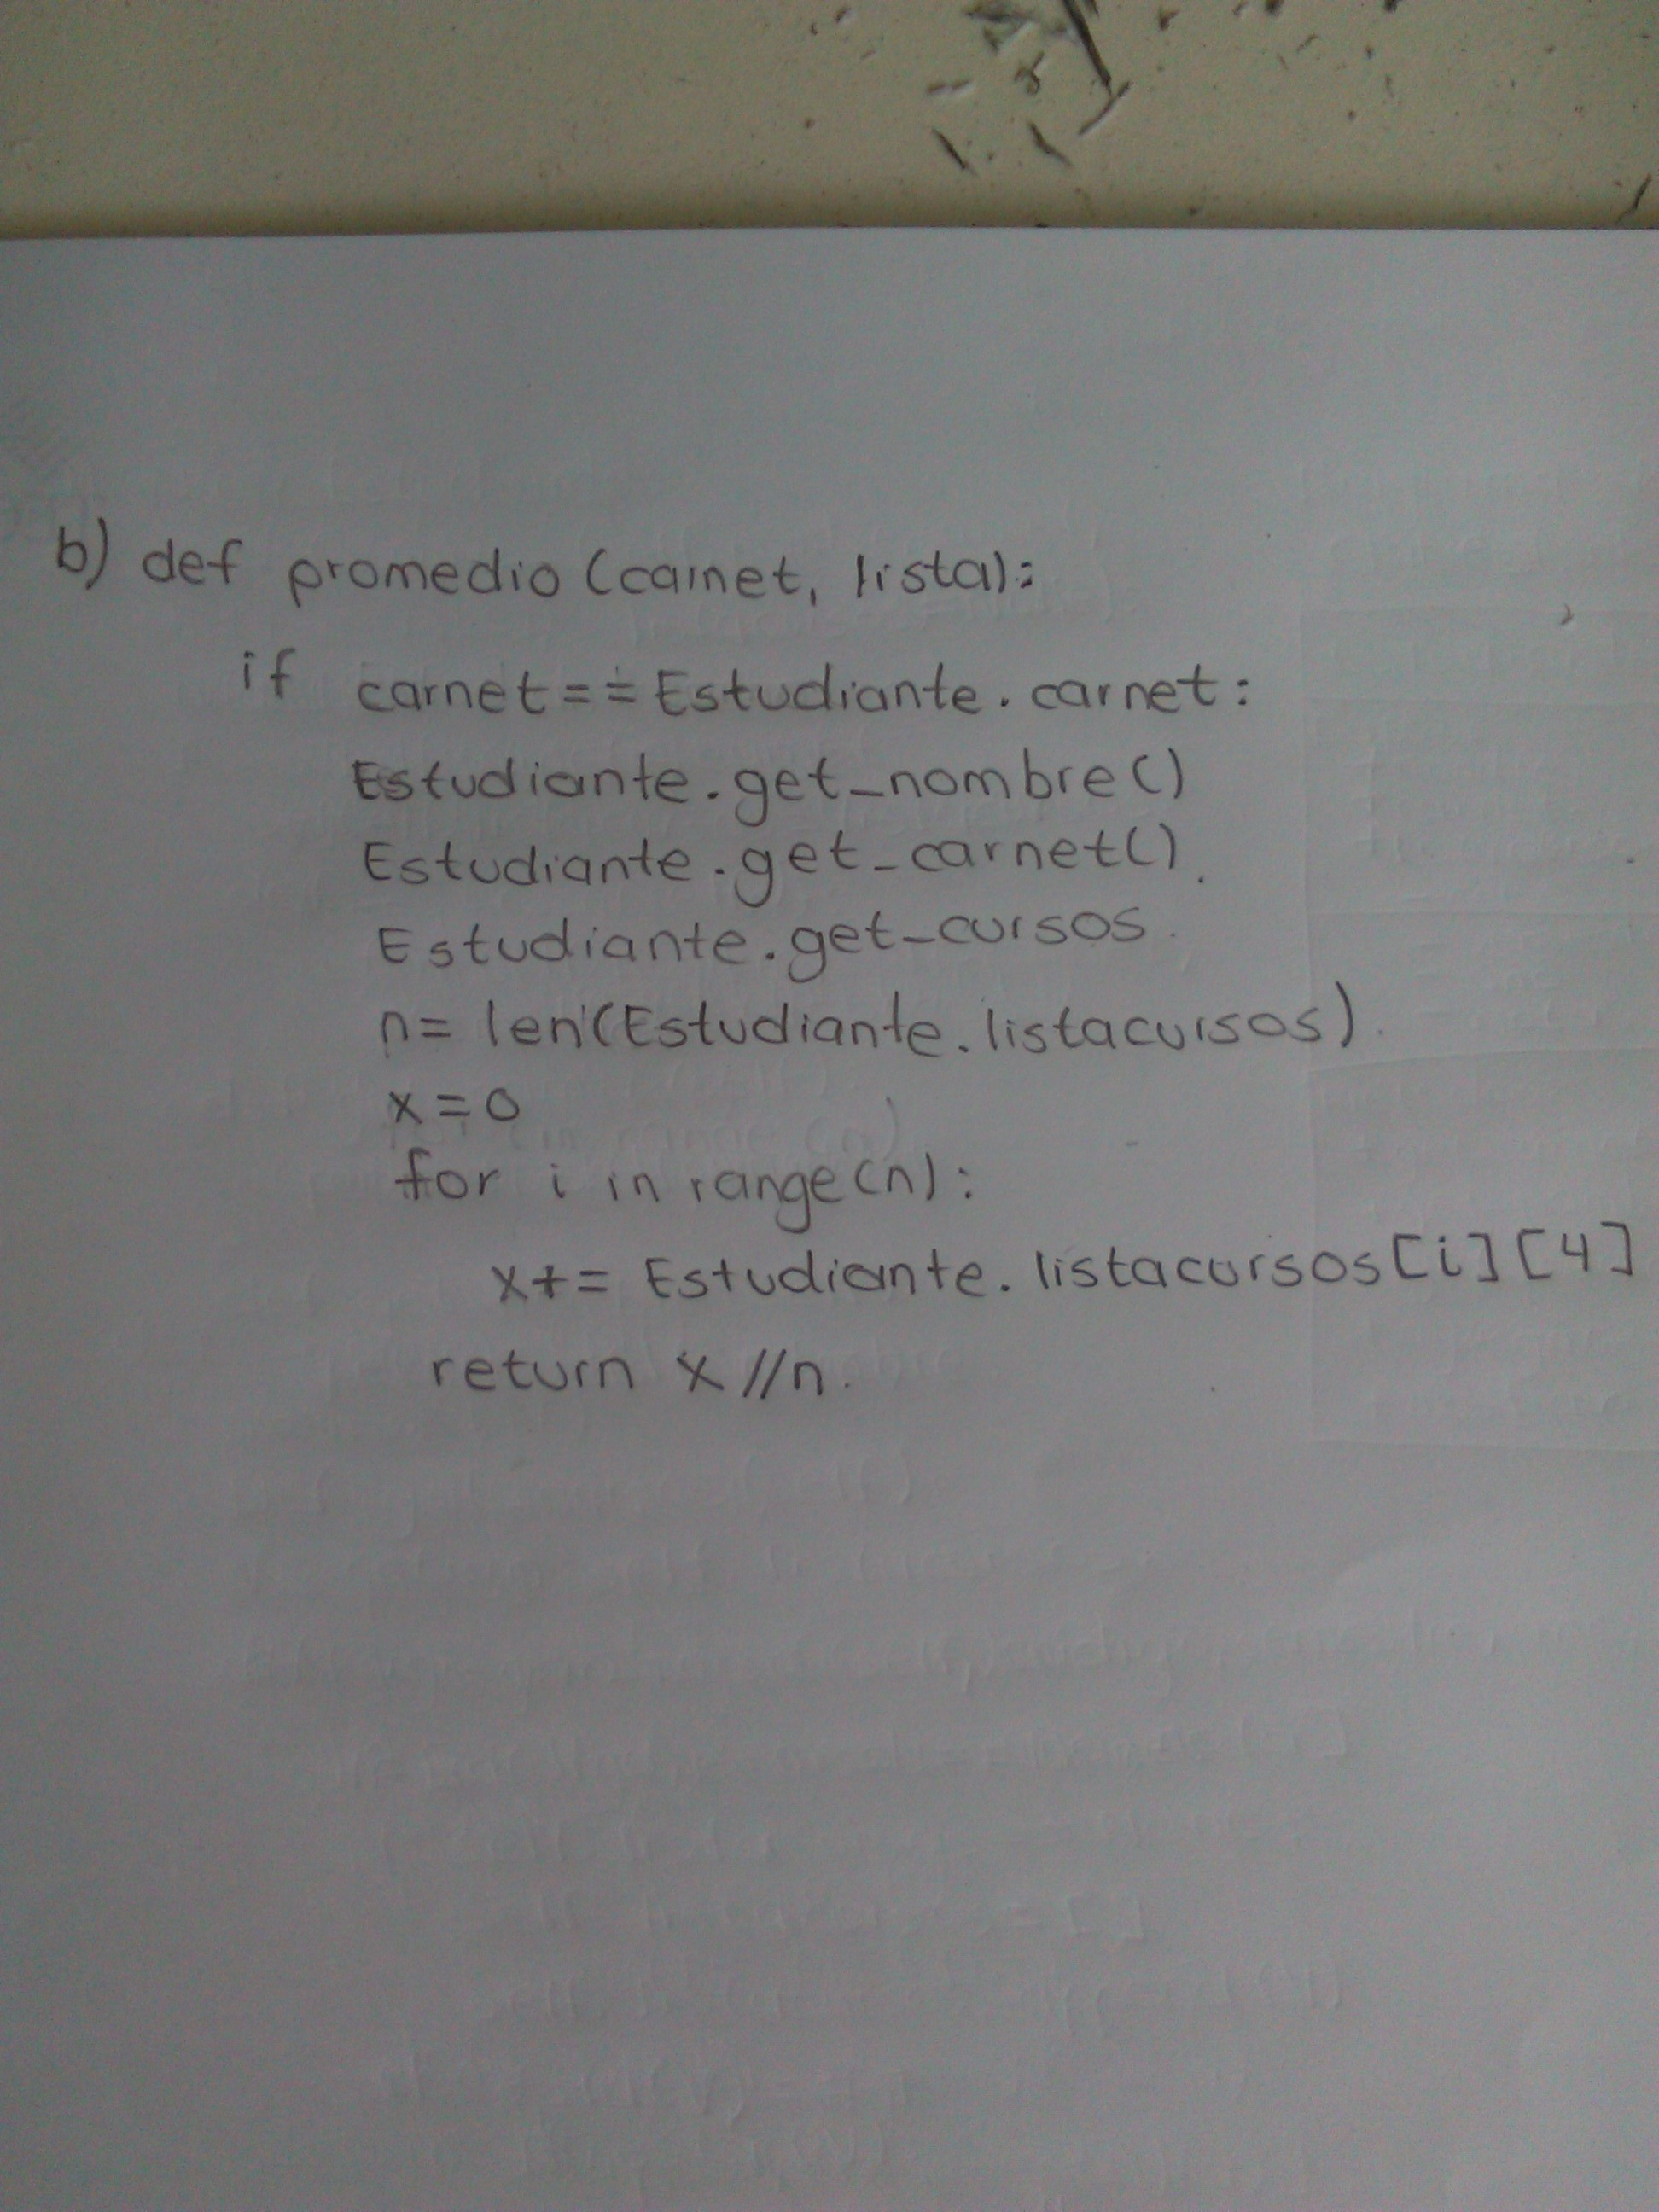 b) def promedio (carnet, lista):
if carnet == Estudiante.carnet:
Estudiante.get_nombre()
Estudiante.get_carnet().
Estudiante.get_cursos.
n= len(Estudiante.listacursos).
x=0
for i in range(n):
x+= Estudiante.listacursos[i][4]
return x//n.